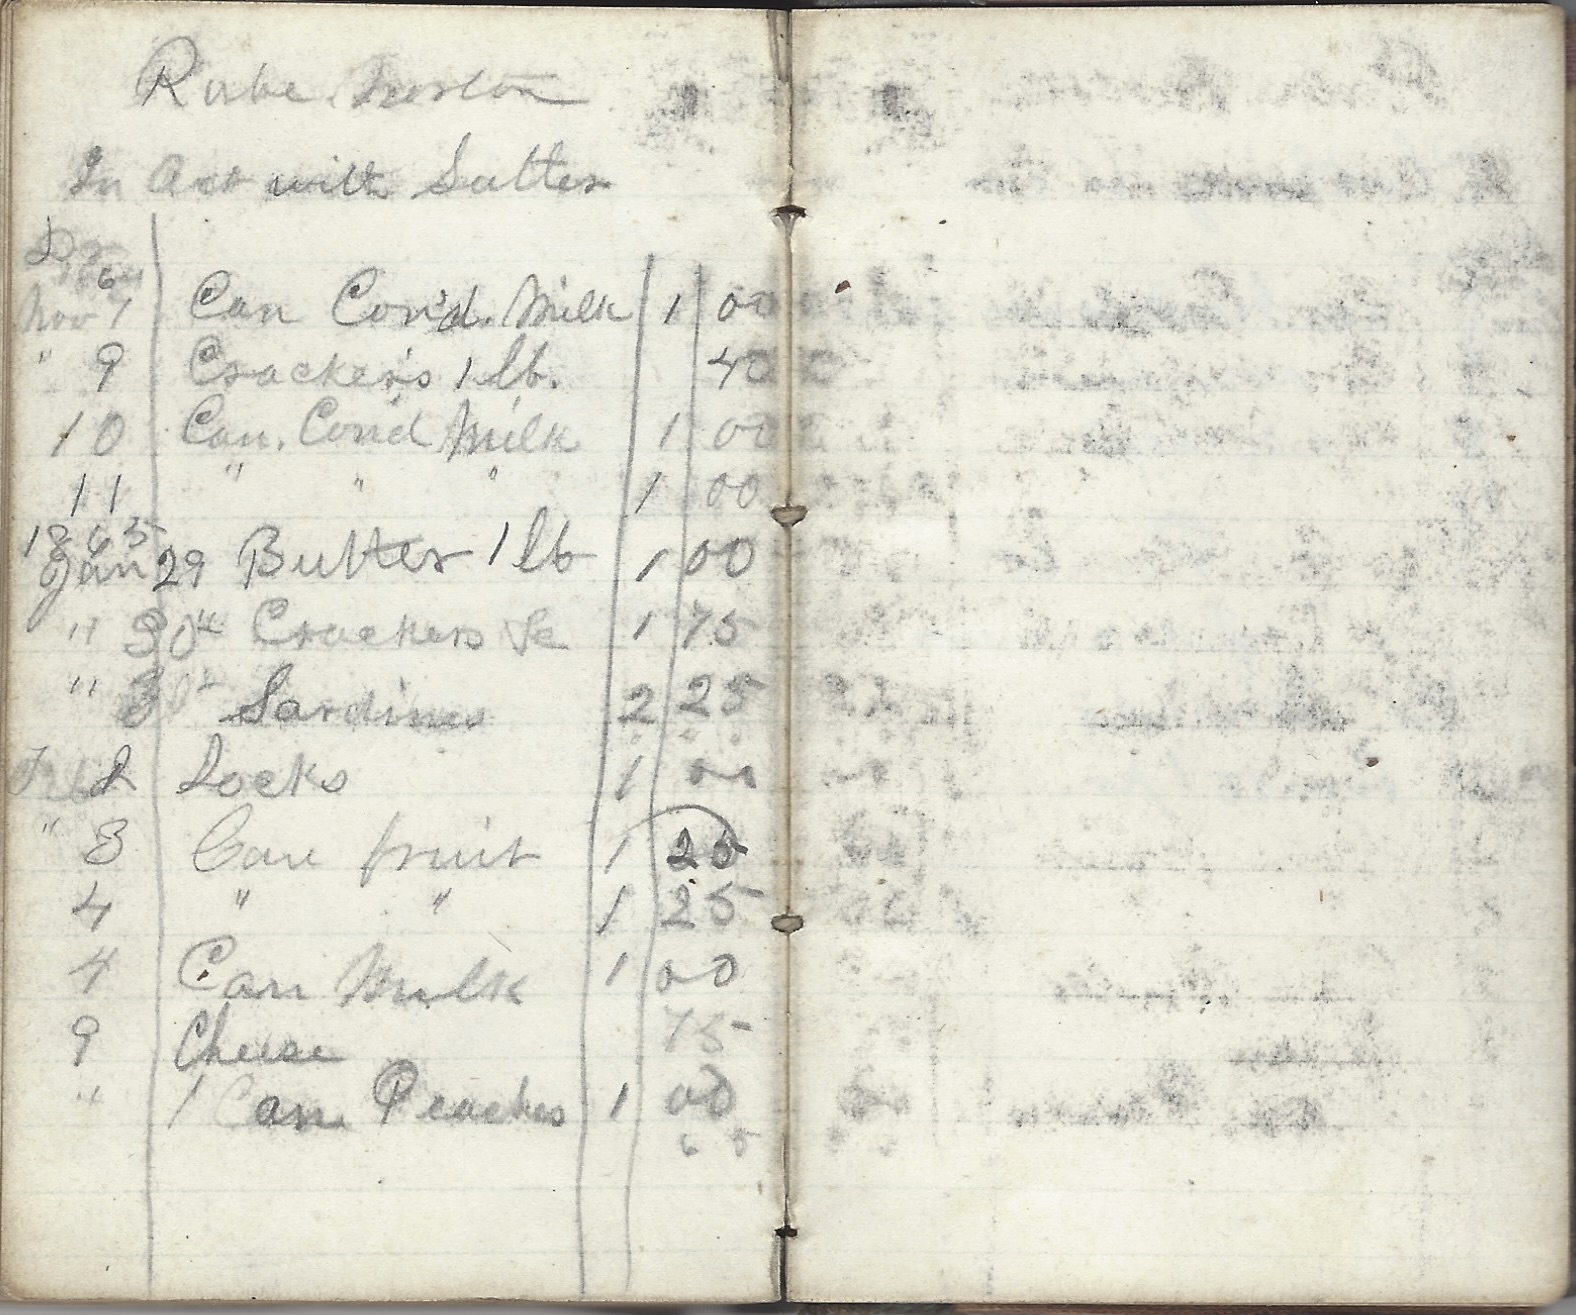 Rube
In Act with Sutter
Dr
Nov 7 Can Con'd. Milk 1 00
" 9 Crackers 1 lb. 40
10 Can. Con'd Milk 1 00
11 " " " 1 00
1865
Jan 29 Butter 1 lb 1 00
" 30th Crackers &c 1 75
" Sardines 2 25
Feb 2 Locks 1 00
" 3 Can fruit 1 25
4 " " 1 25
4 Can Milk 1 00
9 Cheese 75
" 1 Can Peaches 1 00